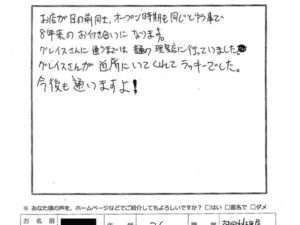 お店が目の前同士、オープン時期も同じという事で
8年来のお付き合いになります。
グレイスさんに通うまでは 麹の 理容店に行っていました。
グレイスさんが 近所にいてくれて ラッキーでした。
今後も 通いますよ!
※ あなた様の声を、ホームページなどでご紹介してもよろしいですか? □はい □匿名で □ダメ
お 名 前